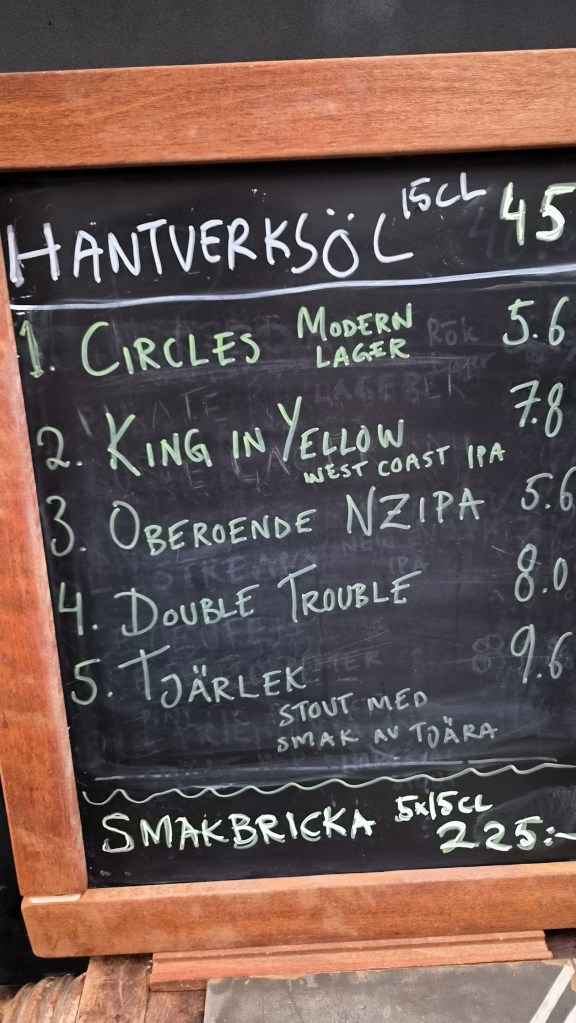 HANTVERKSÖL 15CL 45
1. CIRCLES MODERN LAGER 5.6
2. KING IN YELLOW 7.8
WEST COAST IPA
3. OBEROENDE NZIPA 5.6
4. DOUBLE TROUBLE 8.0
5. TJÄRLEK 9.6
STOUT MED
SMAK AV TJÄRA
SMAKBRICKA 5x15CL
225:-